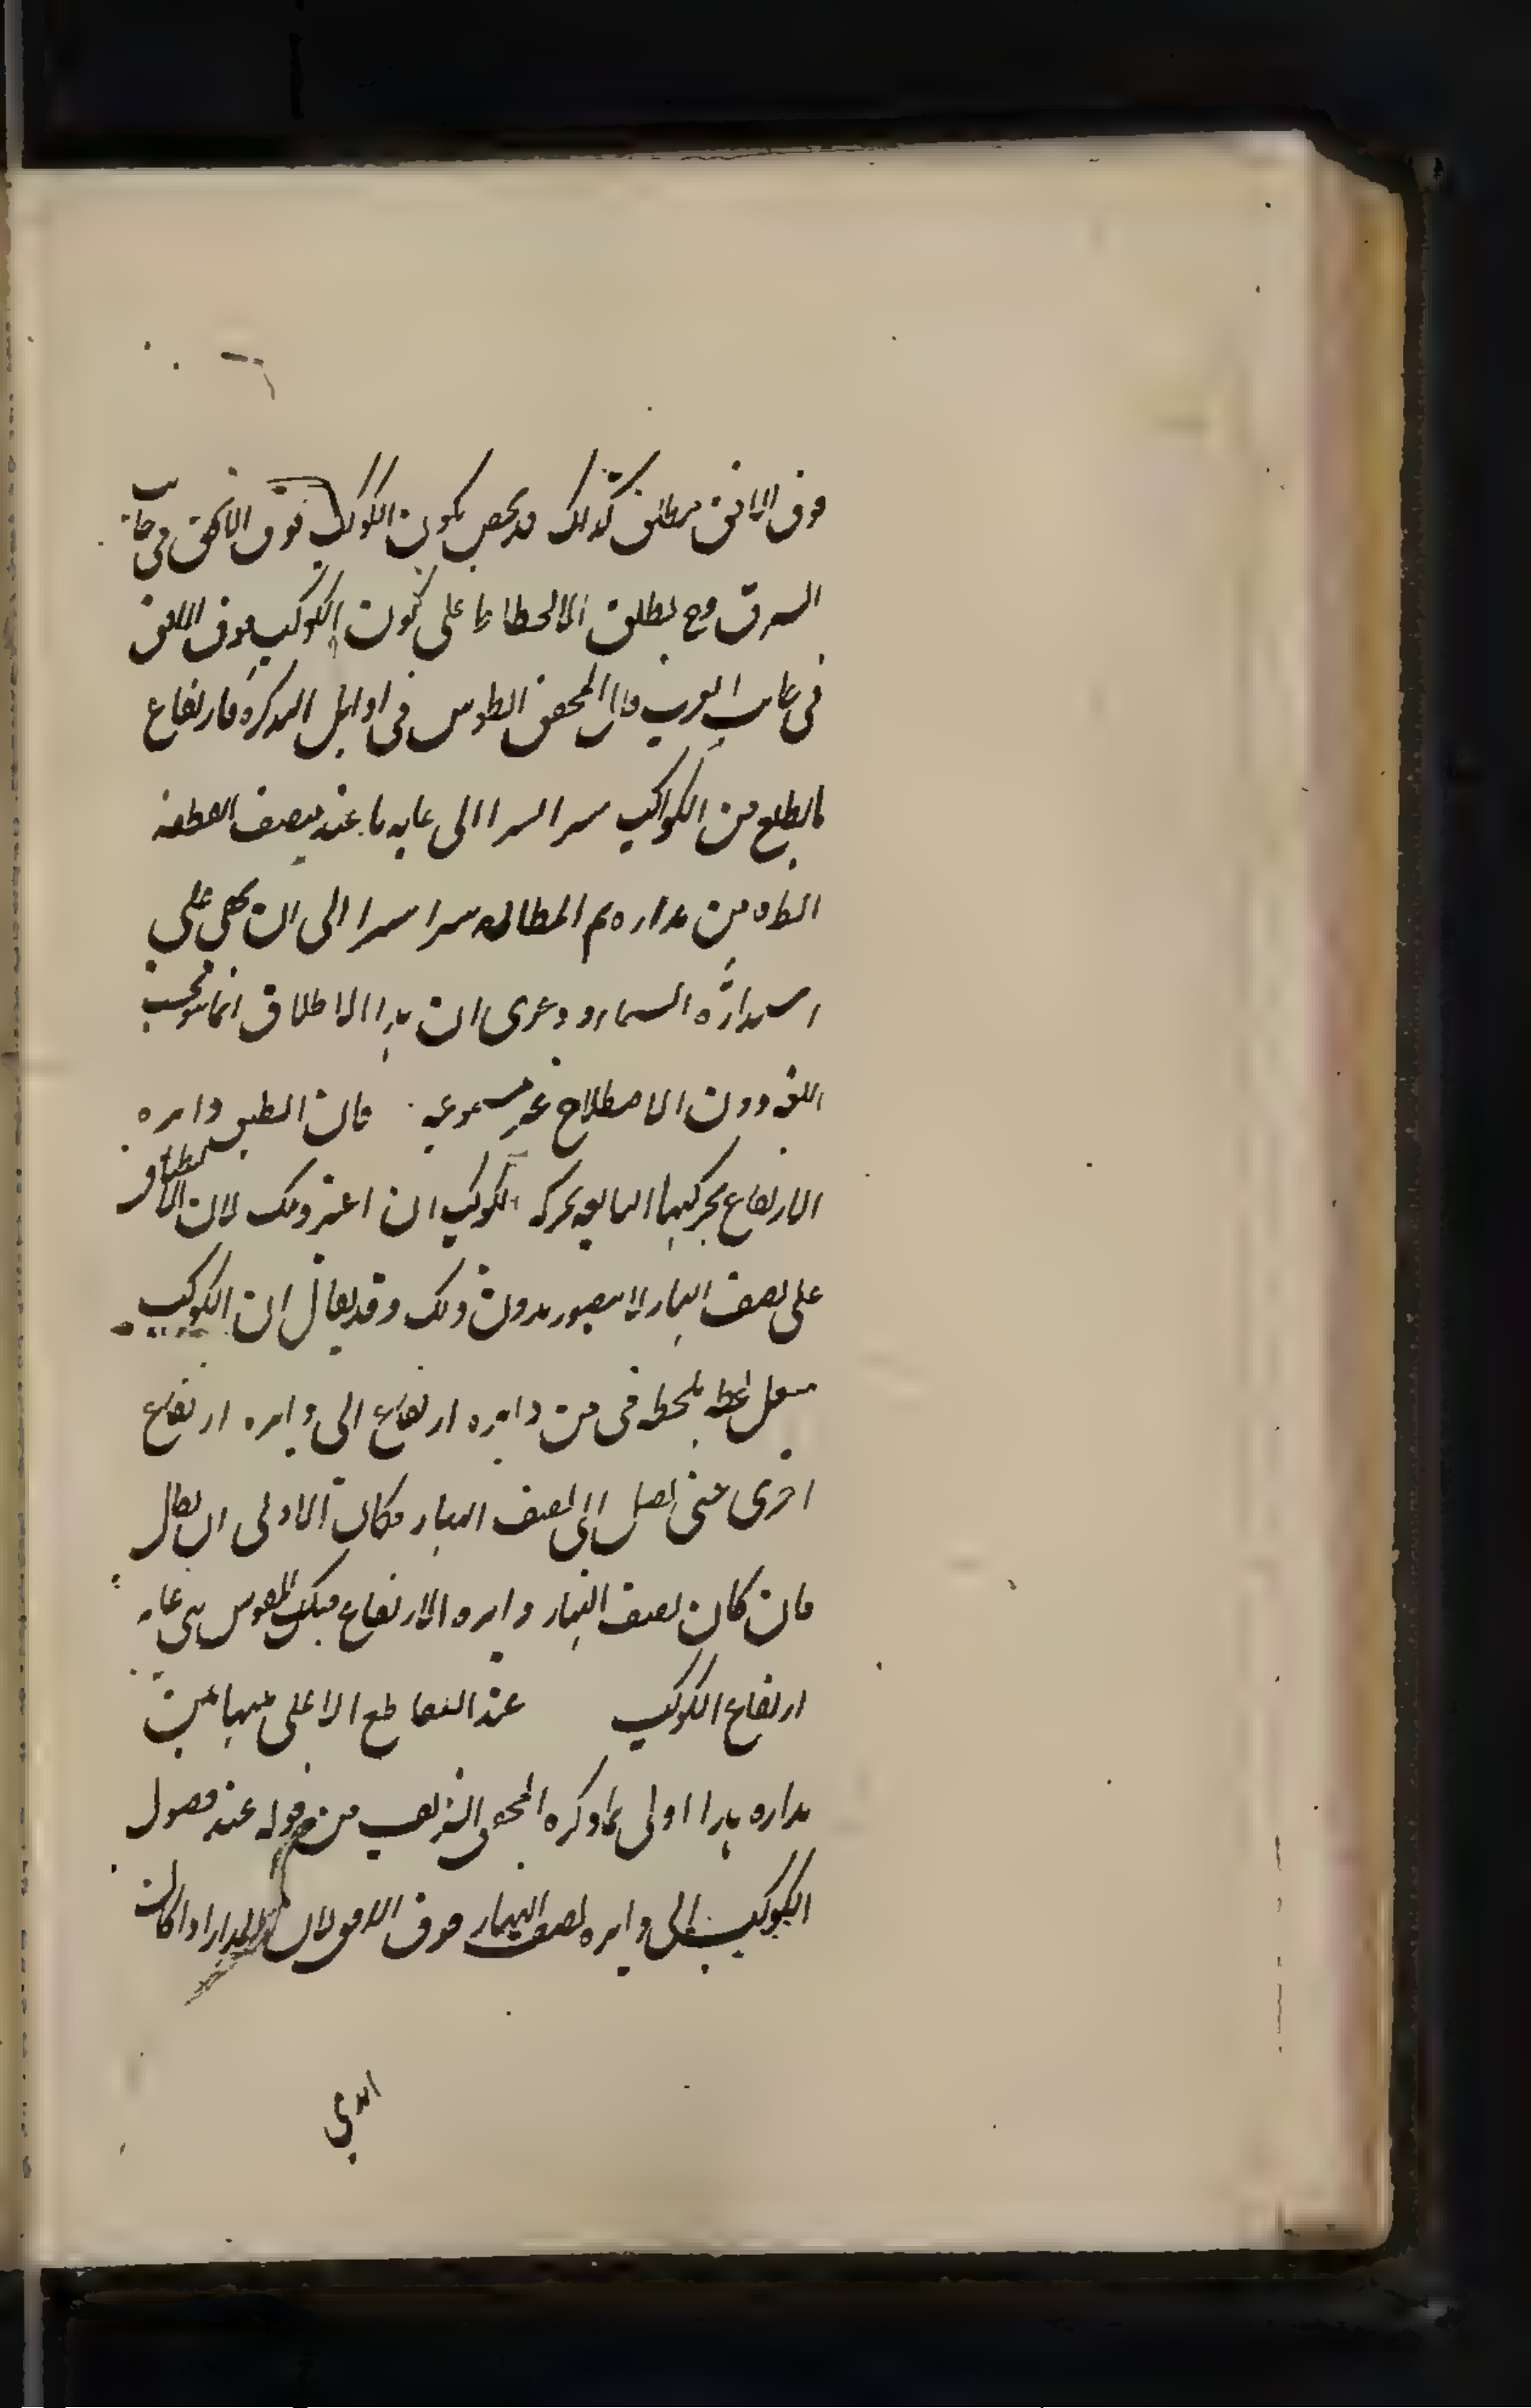 فوق الافق مطلق كذلك قد يخص بكون الكوكب فوق الافق فى جانب
الشرق وح يطلق الانحطاط على كون الكوكب فوق الافق
فى جانب الغرب قال المحقق الطوسى فى اوايل التذكرة فارتفاع
ما يطلع من الكواكب يسيرا يسيرا الى غاية ما عند منتصف القطعة
الظاهرة من مداره ثم انحطاطه يسيرا يسيرا الى ان يخفى على
استدارة السماء ودعوى ان هذا الاطلاق انما هو بحسب
اللغة دون الاصطلاح غير مسموعة فان انطبق دايرة
الارتفاع بحركتها التابعة لحركة الكوكب ان اعتبر ذلك لان الانطباق
على نصف النهار لا يتصور بدون ذلك وقد يقال ان الكوكب
ينتقل لحظة فلحظة من دايرة ارتفاع الى دايرة ارتفاع
اخرى حتى يصل الى نصف النهار فكان الاولى ان يقال
فان كان نصف النهار دايرة الارتفاع فتلك القوس هى غاية
ارتفاع الكوكب عند التقاطع الاعلى منهما من
مداره هذا اولى مما ذكره المحقق الشريف من قوله عند وصول
الكوكب الى دايرة نصف النهار فوق الافق لان المدار اذا كان
ابدي